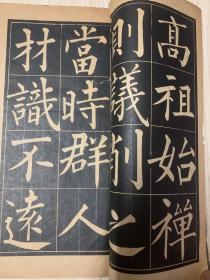 高祖始禪
則議削之
當時群人
材識不遠